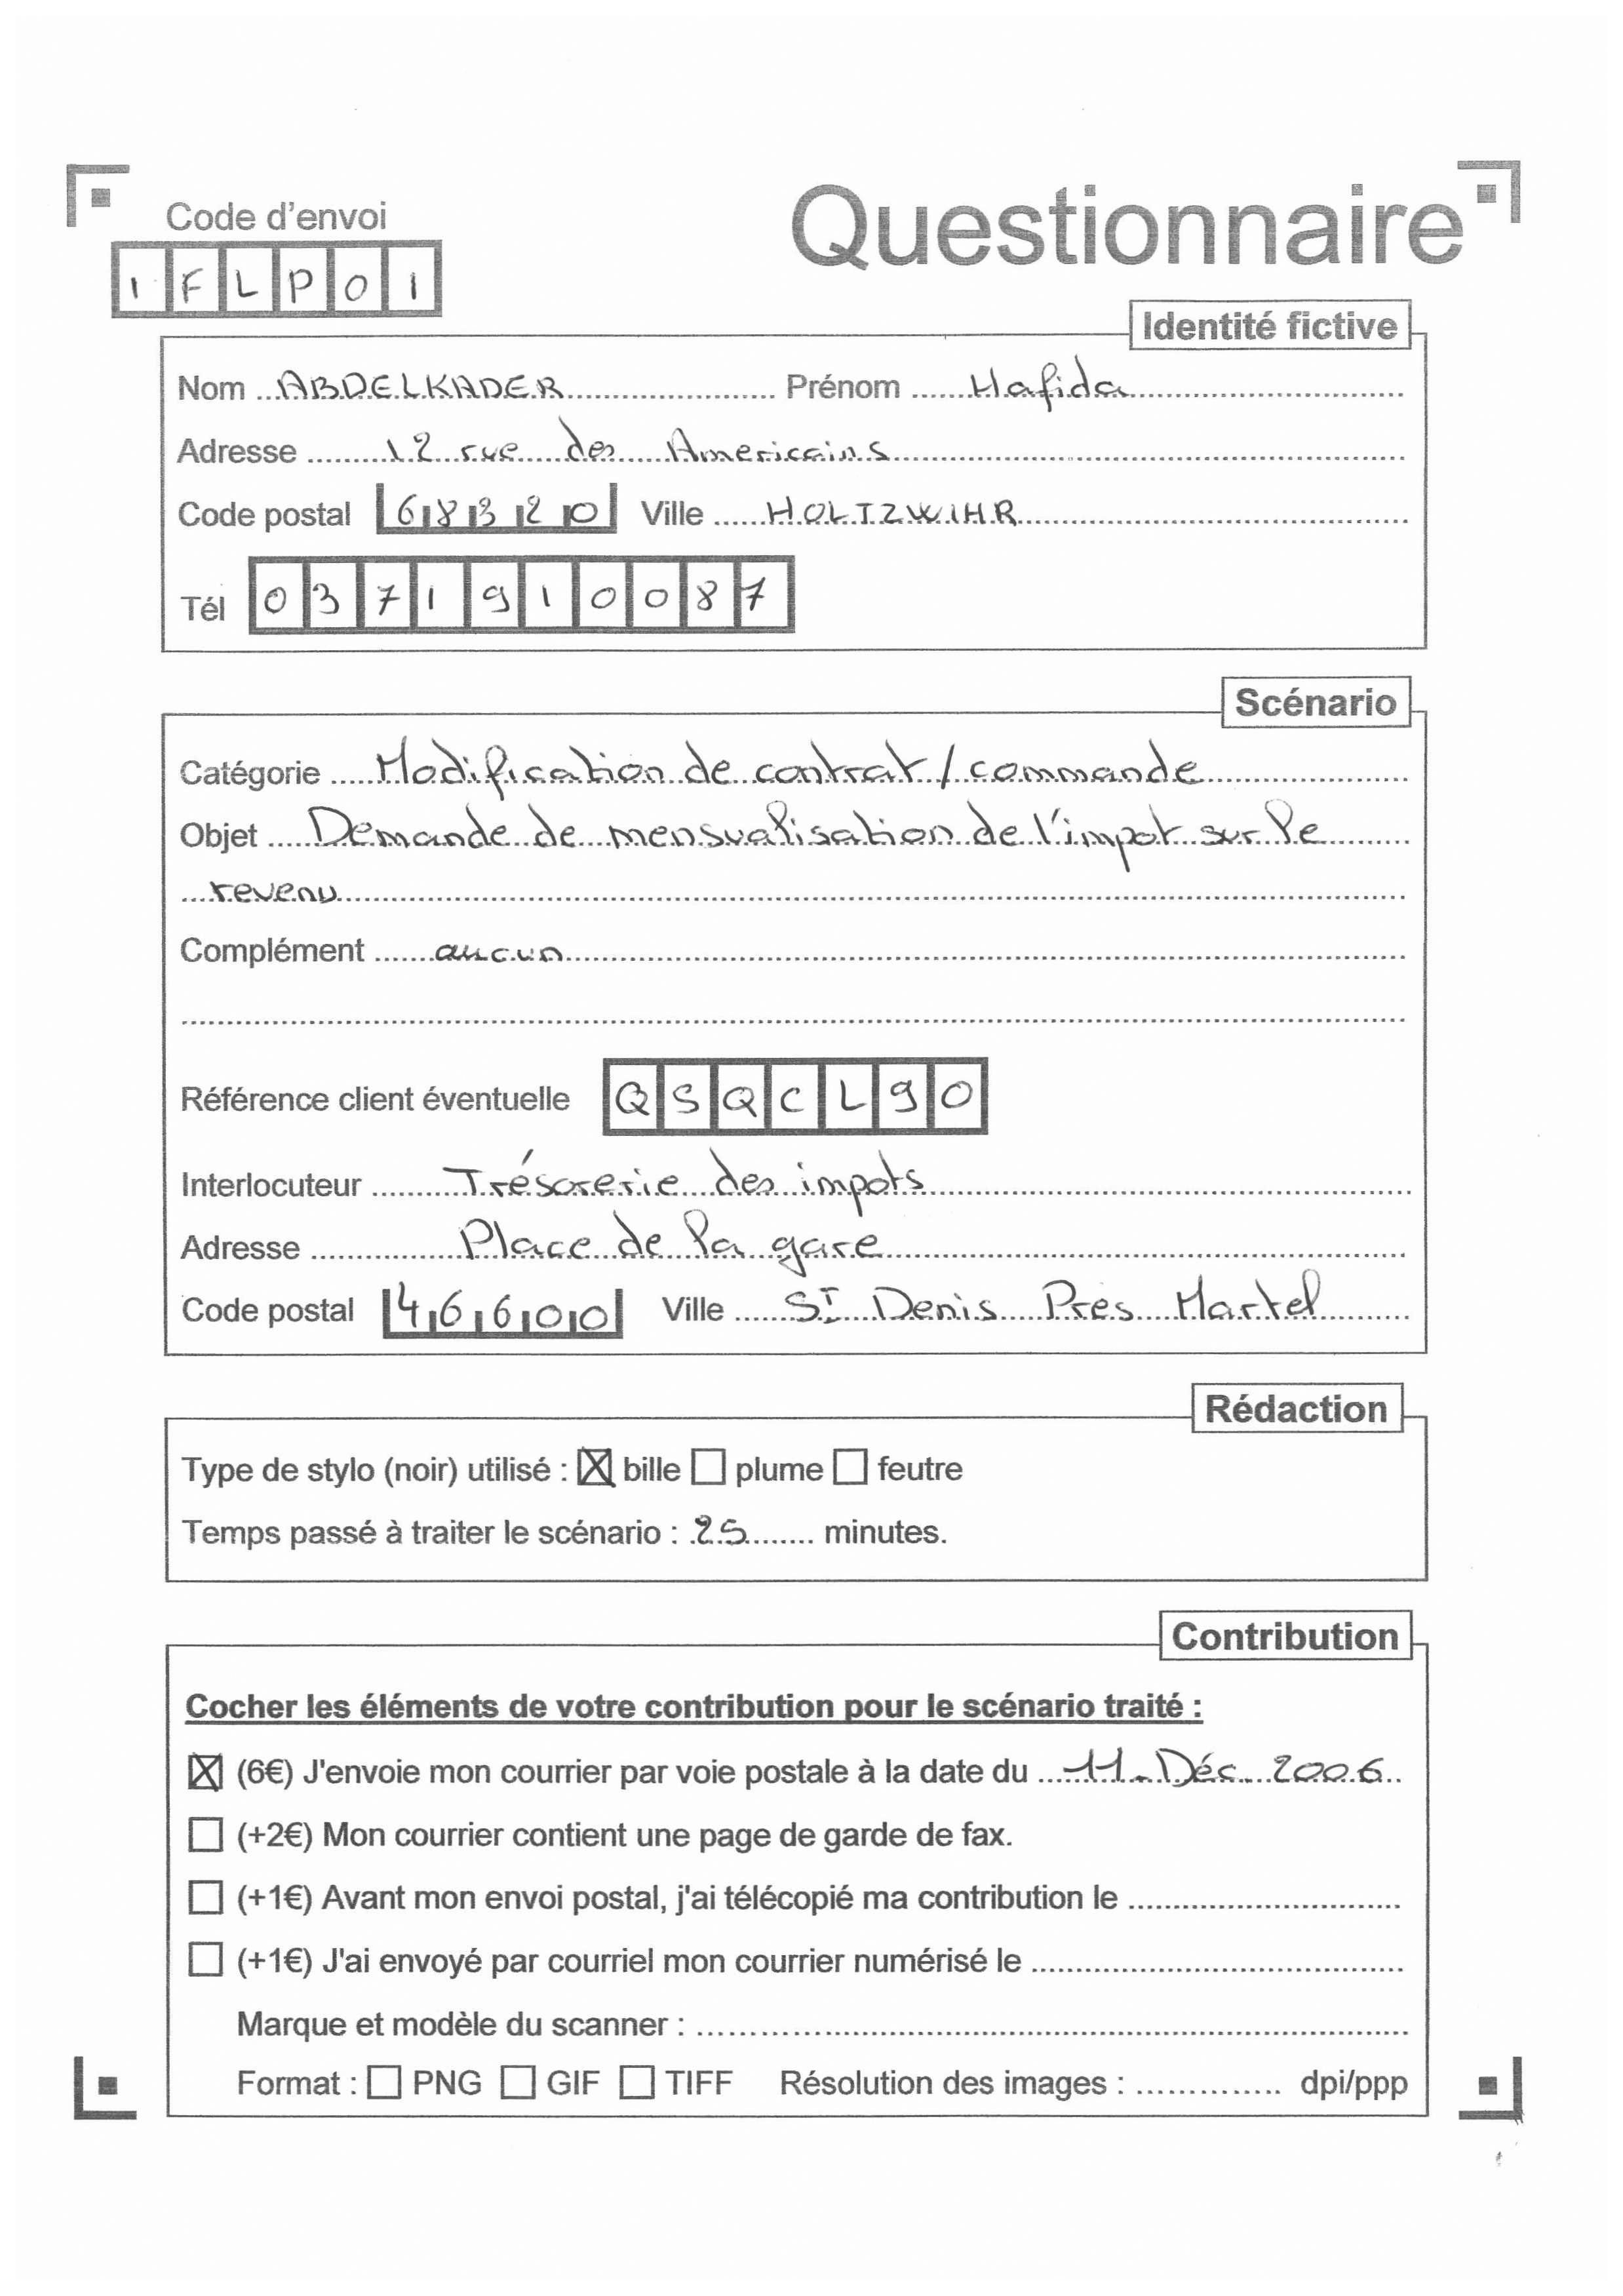 Code d'envoi
Questionnaire
I F L P 0 1
Identité fictive
Nom ABDELKADER Prénom Hafida
Adresse 12 rue des Americains
Code postal 68320 Ville HOLTZWIHR
Tél 0371910087
Scénario
Catégorie Modification de contrat / commande
Objet Demande de mensualisation de l'impot sur le
revenu
Complément aucun
Référence client éventuelle QSQCL90
Interlocuteur Trésorerie des impots
Adresse Place de la gare
Code postal 46600 Ville St Denis Pres Martel
Rédaction
Type de stylo (noir) utilisé : ☒ bille ☐ plume ☐ feutre
Temps passé à traiter le scénario : 25 minutes.
Contribution
Cocher les éléments de votre contribution pour le scénario traité :
☒ (6€) J'envoie mon courrier par voie postale à la date du 11. Déc. 2006
☐ (+2€) Mon courrier contient une page de garde de fax.
☐ (+1€) Avant mon envoi postal, j'ai télécopié ma contribution le
☐ (+1€) J'ai envoyé par courriel mon courrier numérisé le
Marque et modèle du scanner :
Format : ☐ PNG ☐ GIF ☐ TIFF Résolution des images : dpi/ppp